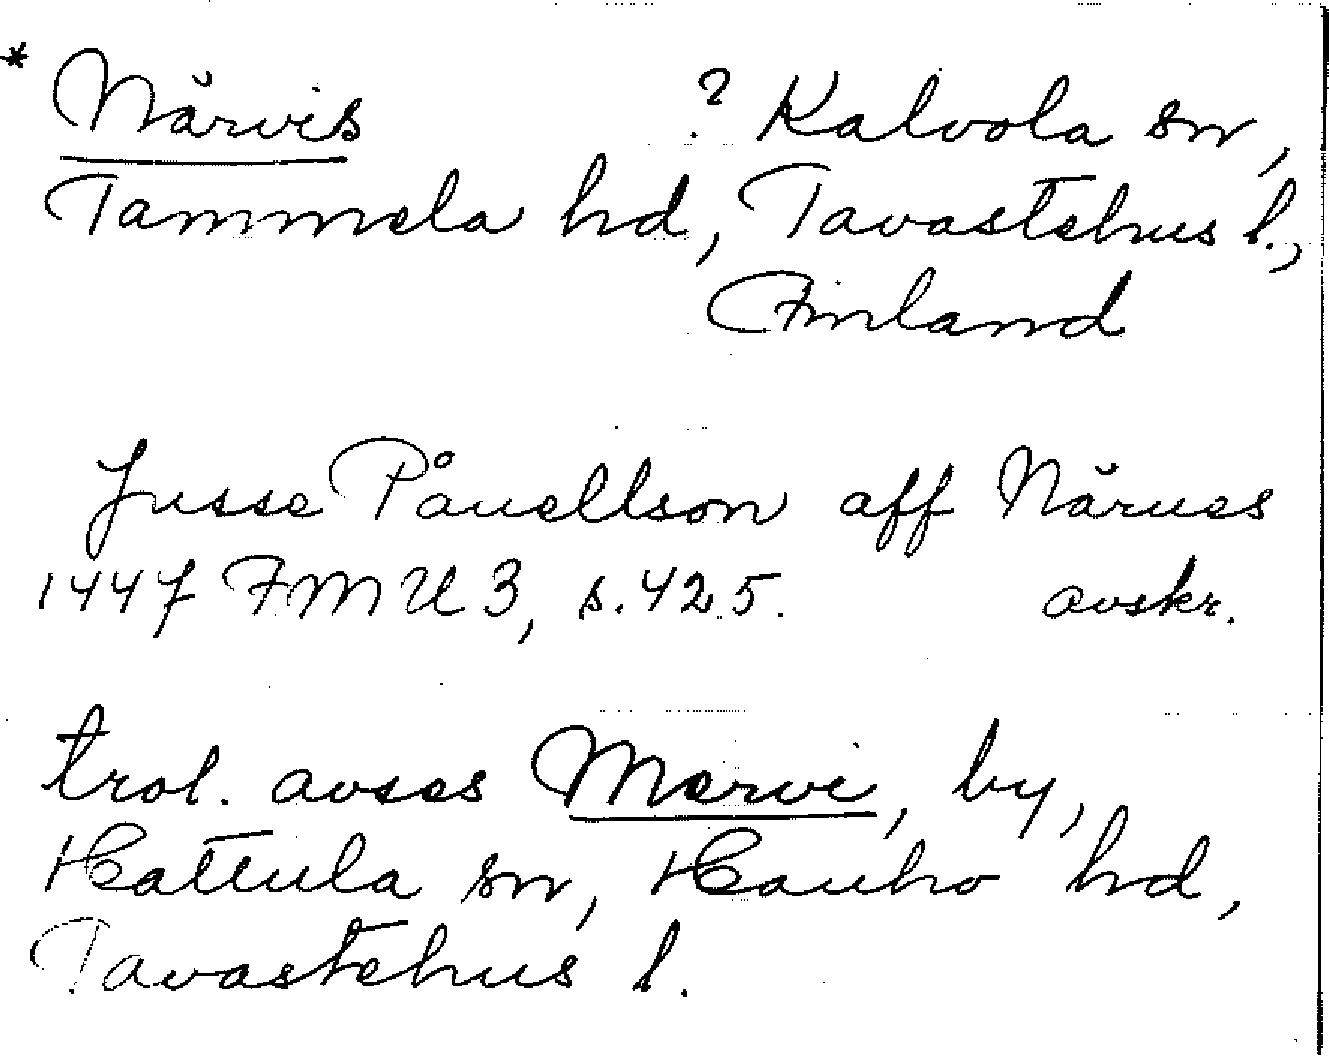 * Närvis ? Kalvola sn,
Tammela hd, Tavastehus l.,
Finland
Jusse Påuellson aff Närues
1447 FMU 3, s. 425. avskr.
trol. avses Mervi, by,
Hattula sn, Hauho hd,
Tavastehus l.